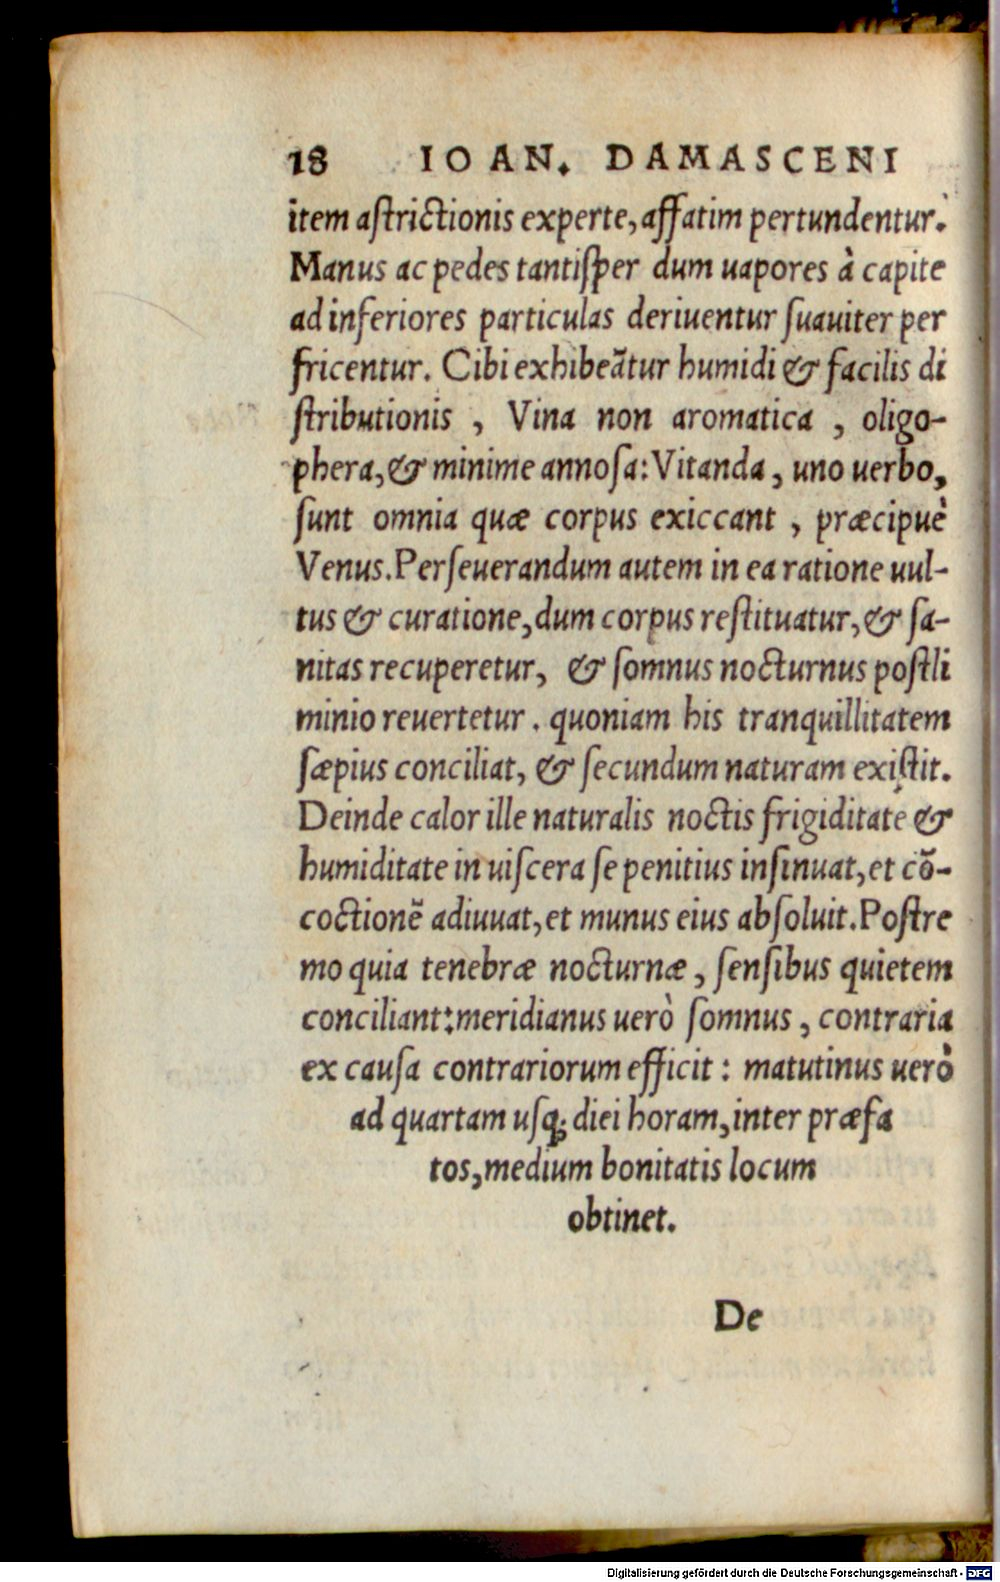 18 IOAN. DAMASCENI
item aſtrictionis experte, affatim pertundentur.
Manus ac pedes tantiſper dum uapores à capite
ad inferiores particulas deriuentur ſuauiter per
fricentur. Cibi exhibeātur humidi & facilis di
ſtributionis , Vina non aromatica , oligo-
phera, & minime annoſa: Vitanda , uno uerbo,
ſunt omnia quæ corpus exiccant , præcipuè
Venus. Perſeuerandum autem in ea ratione uul-
tus & curatione, dum corpus reſtituatur, & ſa-
nitas recuperetur, & ſomnus nocturnus poſtli
minio reuertetur . quoniam his tranquillitatem
ſæpius conciliat, & ſecundum naturam exiſtit.
Deinde calor ille naturalis noctis frigiditate &
humiditate in uiſcera ſe penitius inſinuat, et cō-
coctionē adiuuat, et munus eius abſoluit. Poſtre
mo quia tenebræ nocturnæ , ſenſibus quietem
conciliant: meridianus uerò ſomnus , contraria
ex cauſa contrariorum efficit : matutinus uerò
ad quartam uſq; diei horam, inter præfa
tos, medium bonitatis locum
obtinet.
De
Digitalisierung gefördert durch die Deutsche Forschungsgemeinschaft - DFG